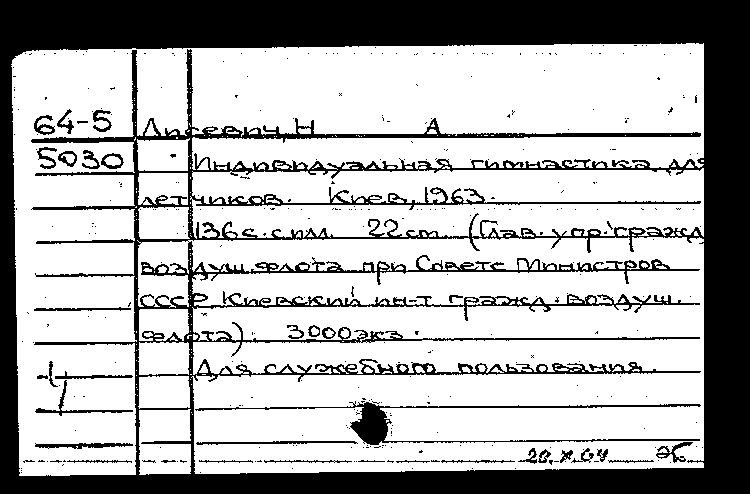 64-5 Лисевич, Н А
5030 Индивидуальная гимнастика для
летчиков. Киев, 1963.
136 с. с илл. 22 см (Глав. упр. гражд
воздуш. флота при Совете Министров
СССР Киевский ин-т гражд. воздуш.
флота). 3000 экз.
Для служебного пользования.
20.X.64